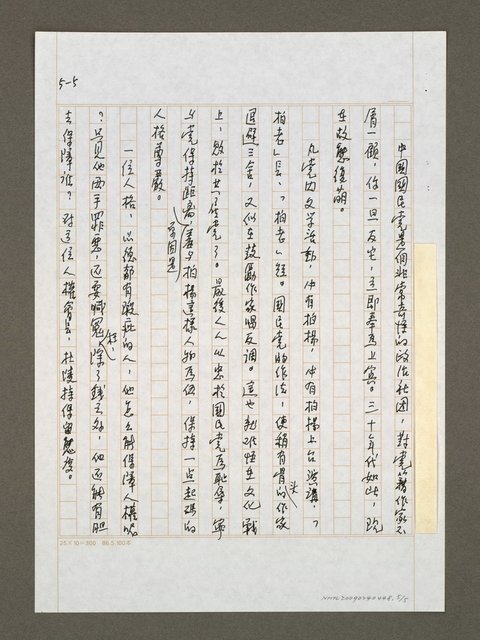 5-5
中國國民黨是個非常奇怪的政治社團，對黨籍作家不
屑一顧，你一旦反它，立即奉為上賓。三十年代如此，現
在故態復萌。
凡黨內文學活動，只有拍楊，只有拍楊上台演講，「
拍老」長、「拍老」短。國民黨的作法，使稍有骨頭的作家
退避三舍，又似在鼓勵作家唱反調。這也就難怪在文化戰
上，敗於共產黨了。最後人人以忠於國民黨為恥辱，寧
與黨保持距離，羞與拍楊這樣人物為伍，保持一點起碼的
人格尊嚴。
一位人格、品德都有瑕疵的人，他怎么能保障人權呢
？只見他兩手罪惡，還要喊冤，除了錢之外，他還能有胆
去保障誰？對這位人權會長，杜陵持保留態度。
25×10=300 86.5.100本
NMTL20090240448.5/5